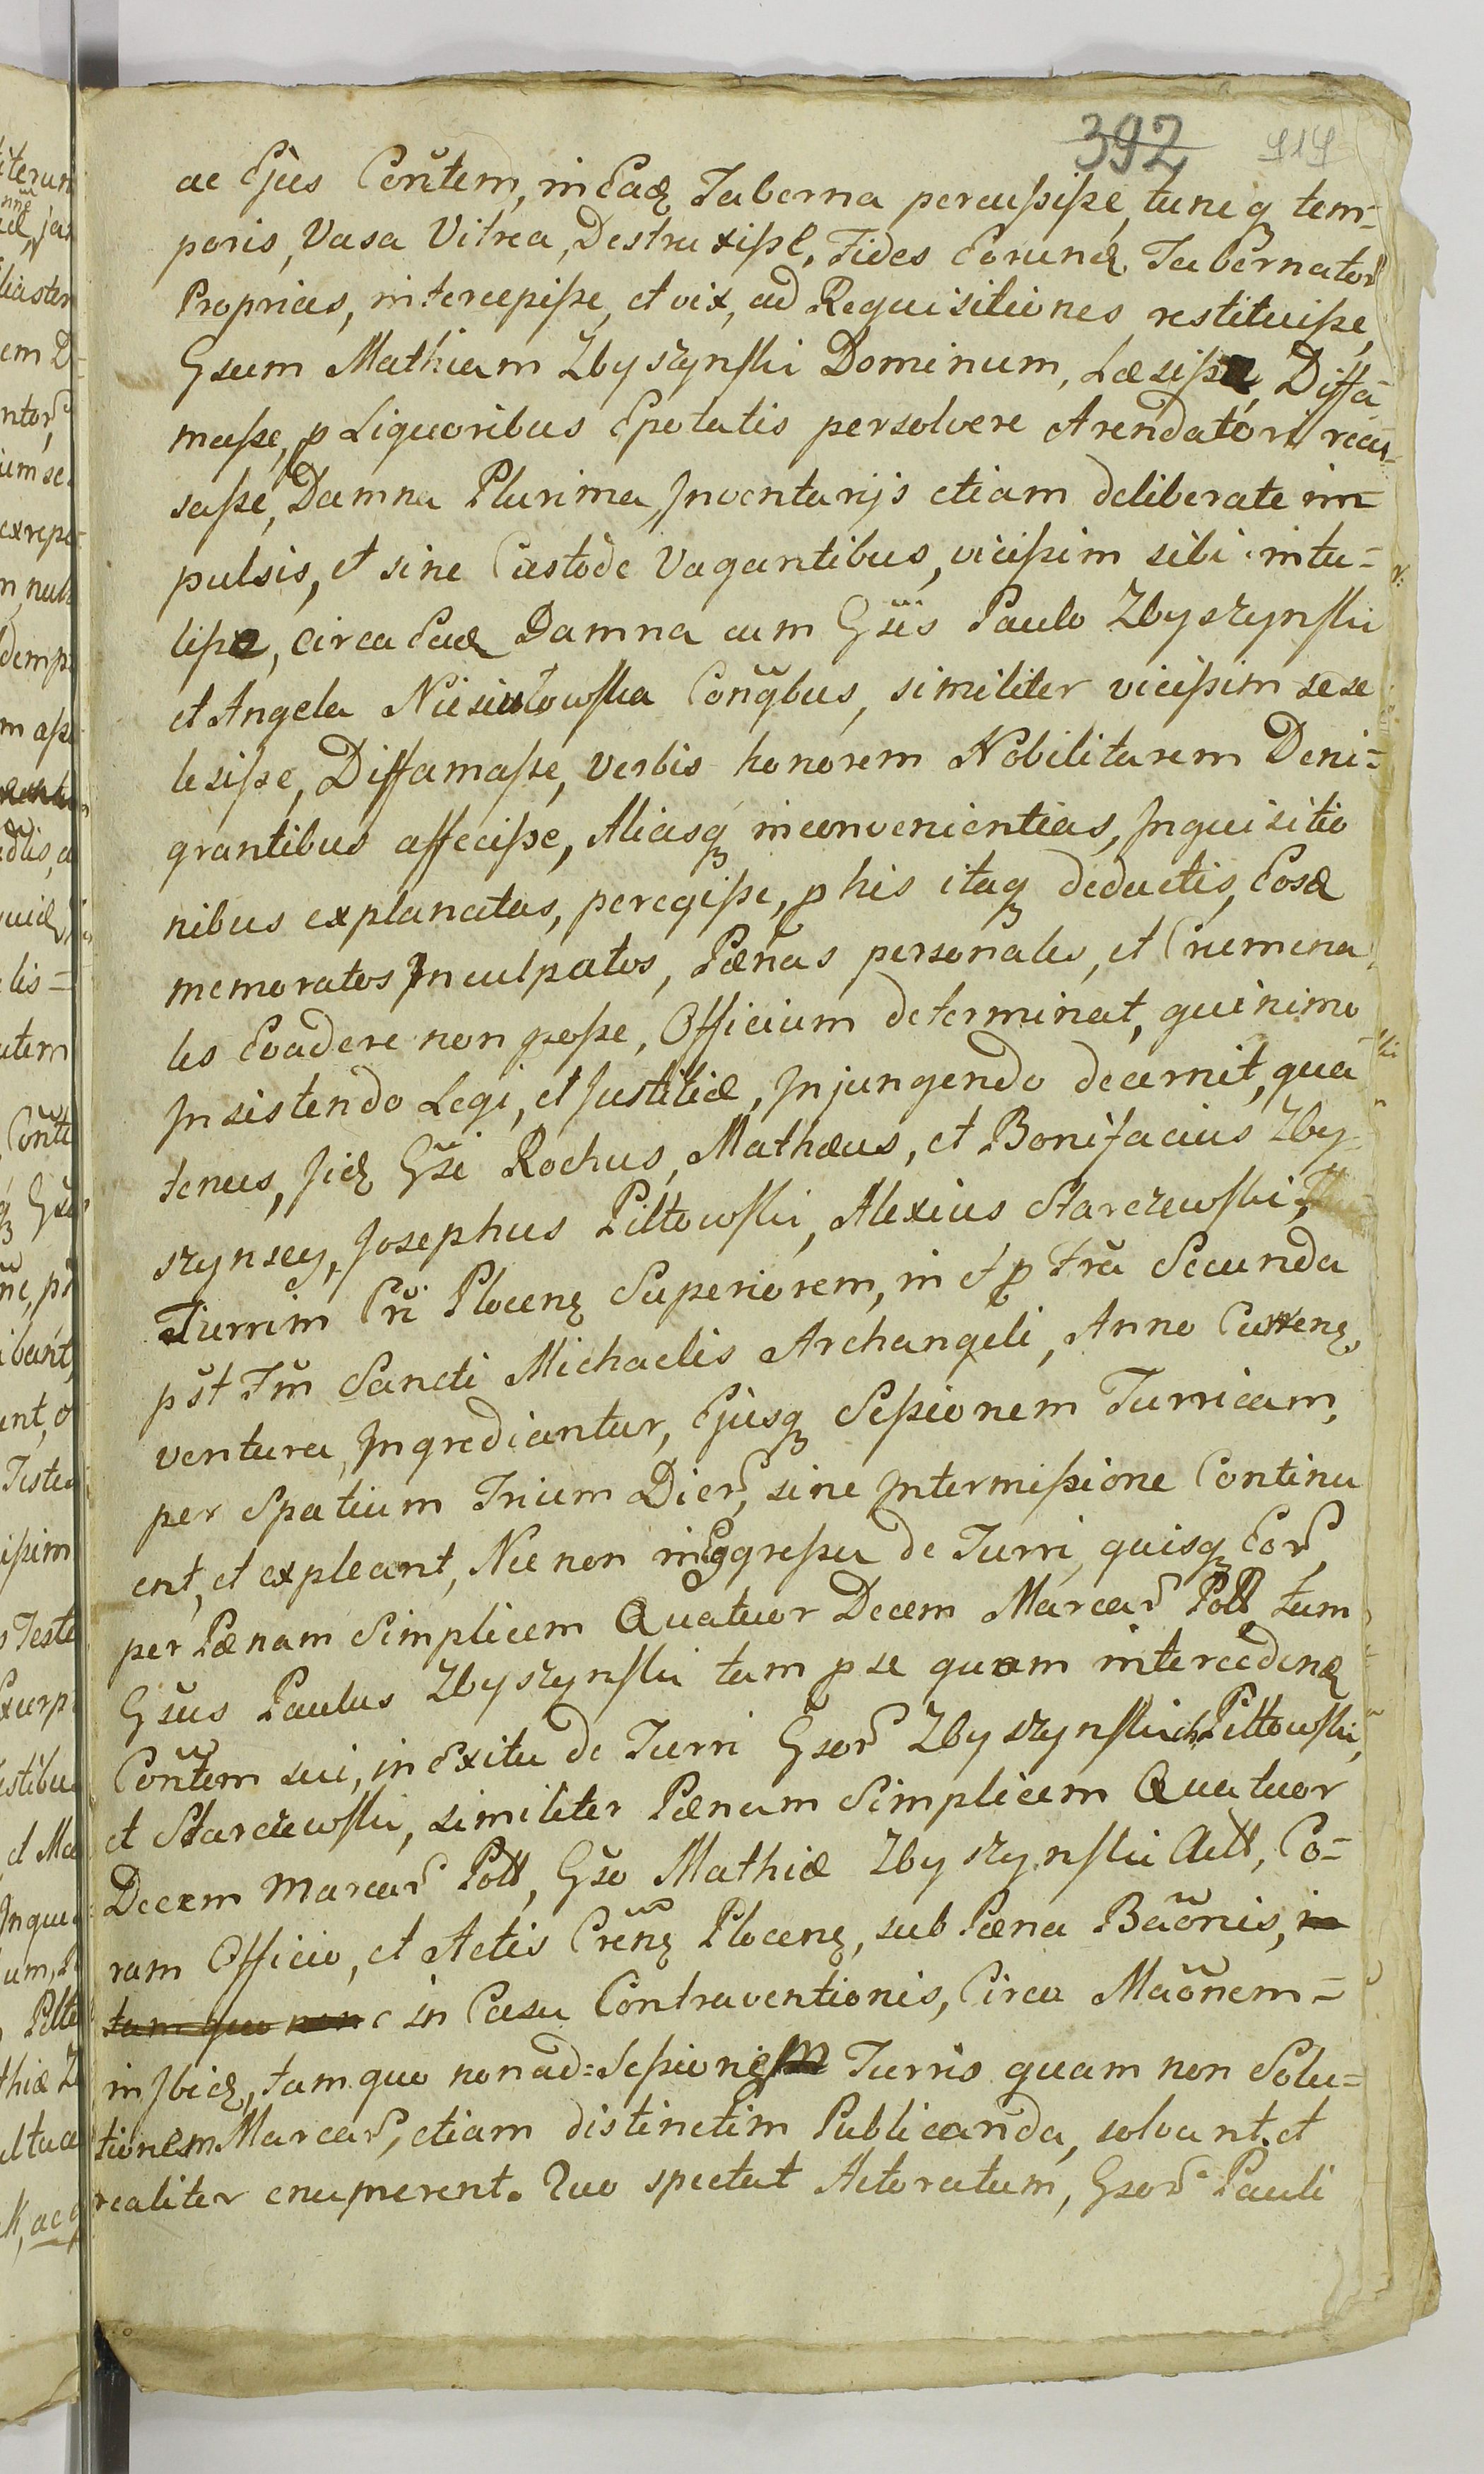 392 919
ac Ejus Cöntem, in Eadȩ Taberna percussisse, tuncq tem-
poris, Vasa Vitrea, Destruxisse, Fides Eorundȩ Tabernator
Proprias, intercepisse, et vix, ad Requisitiones restituisse,
Gsum Mathiam Zbyszynski Dominum, Læsisse, Diffa-
masse, p Liquoribus Epotatis persolvere Arendatori recu-
sasse, Damna Plurima, Inventarijs etiam deliberate im-
pulsis, et sine Custode Vagantibus, vicissim sibi intu-
lisse, circa Eadȩ Damna cum Gsis Paulo Zbyszynski
et Angela Niesiułowska Congbus, similiter vicissim sese
lesisse, Diffamasse, verbis honorem Nobilitarem Deni-
grantibus affecisse, Aliasq inconvenientias, Inquisitio
nibus explanatas, peregisse, p his itaq deductis, Eosd
memoratos Inculpatos, Pænas personales, et Crimina
les Evadere non posse, Officium determinat, quinimo
Insistendo Legi, et Justitiæ, Injungendo decernit, qua
tenus, Jidȩ Gsi Rochus, Mathæus, et Bonifacius Zby-
szynscy, Josephus Piltowski, Alexius Starczewski,
Turrim Cri Plocenȩ Superiorem, in et p Fra Secunda
pst Fm Sancti Michaelis Archangeli, Anno Currenȩ
ventura, Ingrediantur, Ejusq Sessionem Turricam,
per Spatium Trium Dier, sine Intermissione Continu
ent, et expleant, Nec non in Egressu de Turri, quisq Eor
per Pænam Simplicem Quatuor Decem Marcar Poll, tum
Gsus Paulus Zbyszynski tam p se quam intercedenȩ
Contem sui, in Exitu de Turri Gsor Zbyszynskich Piltowski,
et Starczewski, similiter Pænam Simplicem Quatuor
Decem Marcar Poll, Gso Mathiæ Zbyszynski Actt, Co-
ram Officio, et Actis Crenȩ Plocenȩ, sub Pæna Baonis, in
tam quo non c in Casu Contraventionis, Circa Maonem=
in Ibidȩ, tam quo non ad= Sessionem Turris quam non Solu=
tionem Marcar, etiam distinctim Publicanda, solvant et
realiter enumerent. Quo spectat Actoratum, Gsor Pauli